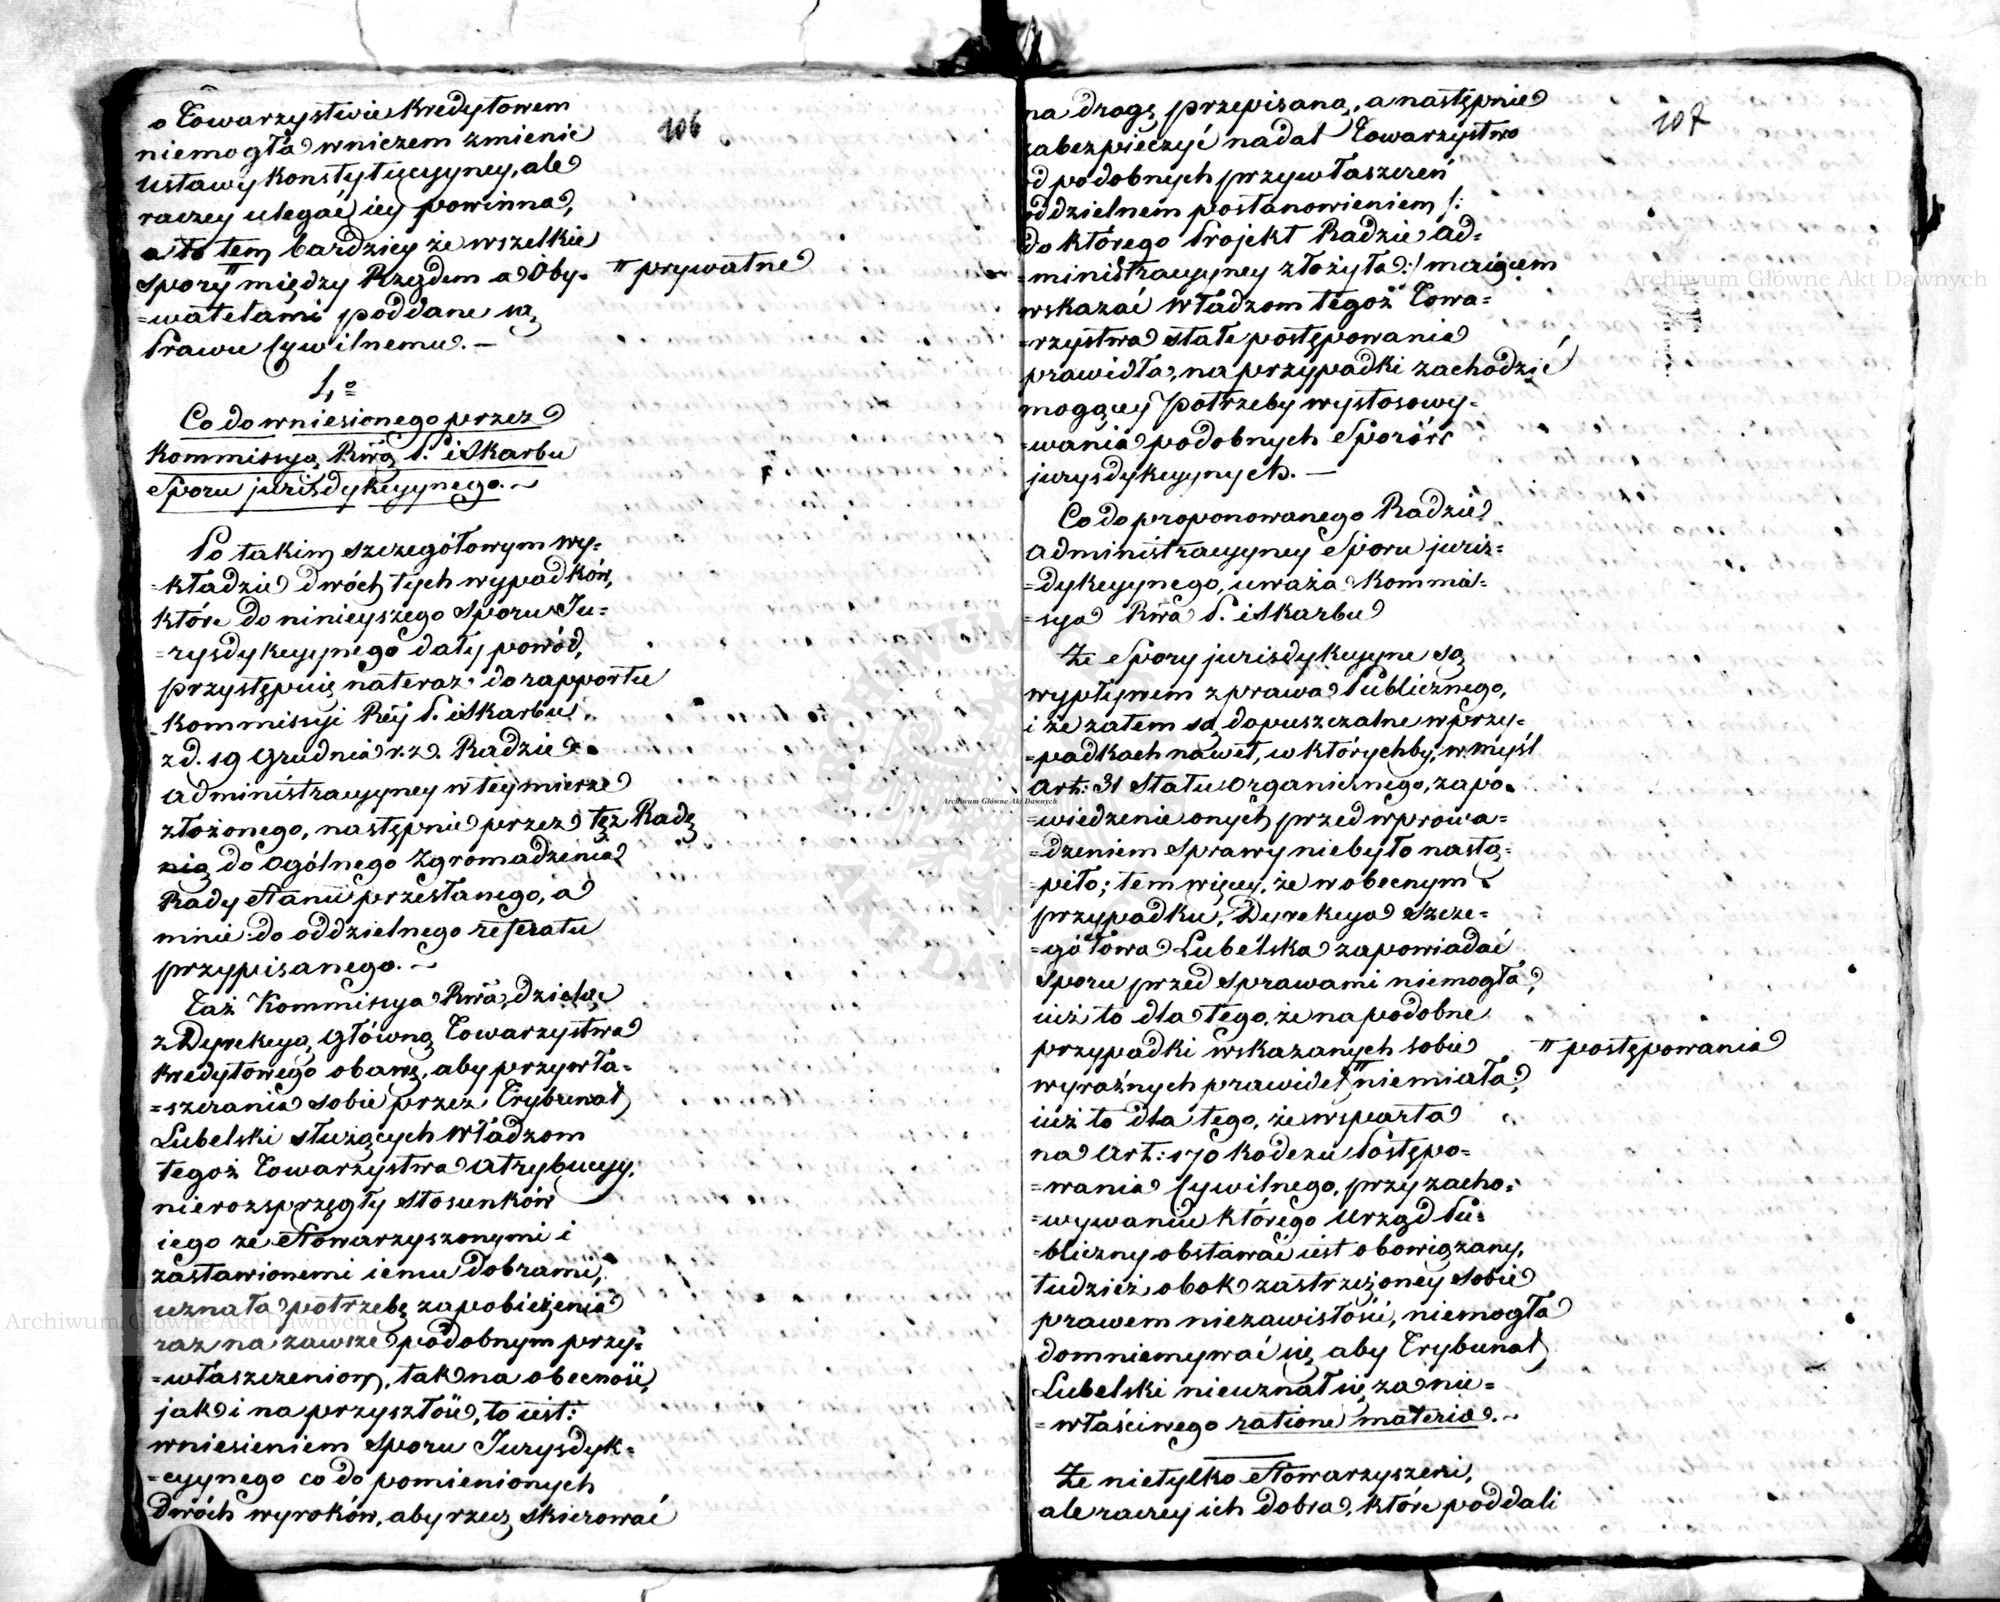 106
o Towarzystwie Kredytowem
niemogła wniczem zmienić
Ustawy Konstytucyyney, ale
raczey ulegać iey powinna,
a to tem bardziey że wszelkie
Spory " między Rządem a Oby-
" prywatne
=watelami poddane są
Prawu Cywilnemu. —
4o
Co do wniesionego przez
Kommissyą Rwą P. i Skarbu
Sporu jurisdykcyynego. ~
Po takim szczegółowym wy-
=kładzie dwóch tych wypadków,
które do ninieyszego Sporu Ju=
=rysdykcyynego dały powód,
przystępuię nateraz do rapportu
Kommissyi Rēy P. i Skarbu
z d. 19 Grudnia r. z. Radzie
Administracyyney w tey mierze
złożonego, następnie przez tęż Radę
nią do Ogólnego Zgromadzenia
Rady Stanu przesłanego, a
mnie do oddzielnego referatu
przypisanego. ~
Taż Kommissya Rwa, dzieląc
z Dyrekcyą Główną Towarzystwa
Kredytowego obawę, aby przywła=
=szczania sobie przez Trybunał
Lubelski służących Władzom
tegoż Towarzystwa atrybucyy,
nierozsprzęgły Stosunków
iego ze Stowarzyszonymi i
zastawionemi iemu dobrami,
uznała potrzebę zapobieżenia
raz na zawsze podobnym przy=
=właszczeniom, tak na obecność,
jak i na przyszłość, to iest:
wniesieniem Sporu Jurysdyk=
=cyynego co do pomienionych
dwóch wyroków, aby rzecz skierować
107
na drogę przepisaną, a następnie
zabezpieczyć nadal Towarzystwo
od podobnych przywłaszczeń
oddzielnem postanowieniem /:
do którego Projekt Radzie Ad=
=ministracyyney złożyła :/ maiącem
wskazać Władzom tegoż Towa=
=rzystwa stałe postępowania
prawidła, na przypadki zachodzić
mogącey potrzeby wystosowy-
=wania podobnych Sporów
jurysdykcyynych. —
Co do proponowanego Radzie
Administracyyney Sporu juris=
=dykcyynego, uważa Kommis=
=sya Rwa P. i Skarbu
Że Spory jurisdykcyyne są
wypływem z prawa Publicznego,
i że zatem są dopuszczalne w przy=
=padkach nawet, w którychby, w myśl
Art: 31 Statu Organicznego, zapo=
=wiedzenie onych przed wprowa=
=dzeniem Sprawy niebyło nastą=
=piło; tem więcey, że w obecnym
przypadku, Dyrekcya Szcze=
=gółowa Lubelska zapowiadać
Sporu przed sprawami niemogła,
iuż to dla tego, że na podobne
przypadki wskazanych sobie
" postępowania
wyraźnych prawideł " niemiała;
iuż to dla tego, że wsparta
na Art: 170 Kodexu Postępo=
=wania Cywilnego, przy zacho=
=wywaniu którego Urząd Pu=
=bliczny obstawać iest obowiązany,
tudzież obok zastrzeżoney Sobie
prawem niezawisłości, niemogła
domniemywać się aby Trybunał
Lubelski nieuznał się za nie=
=właściwego ratione materiae. ~
Że nietylko Stowarzyszeni,
ale raczey ich dobra, które poddali
Archiwum Główne Akt Dawnych
Archiwum Główne Akt Dawnych
Archiwum Główne Akt Dawnych